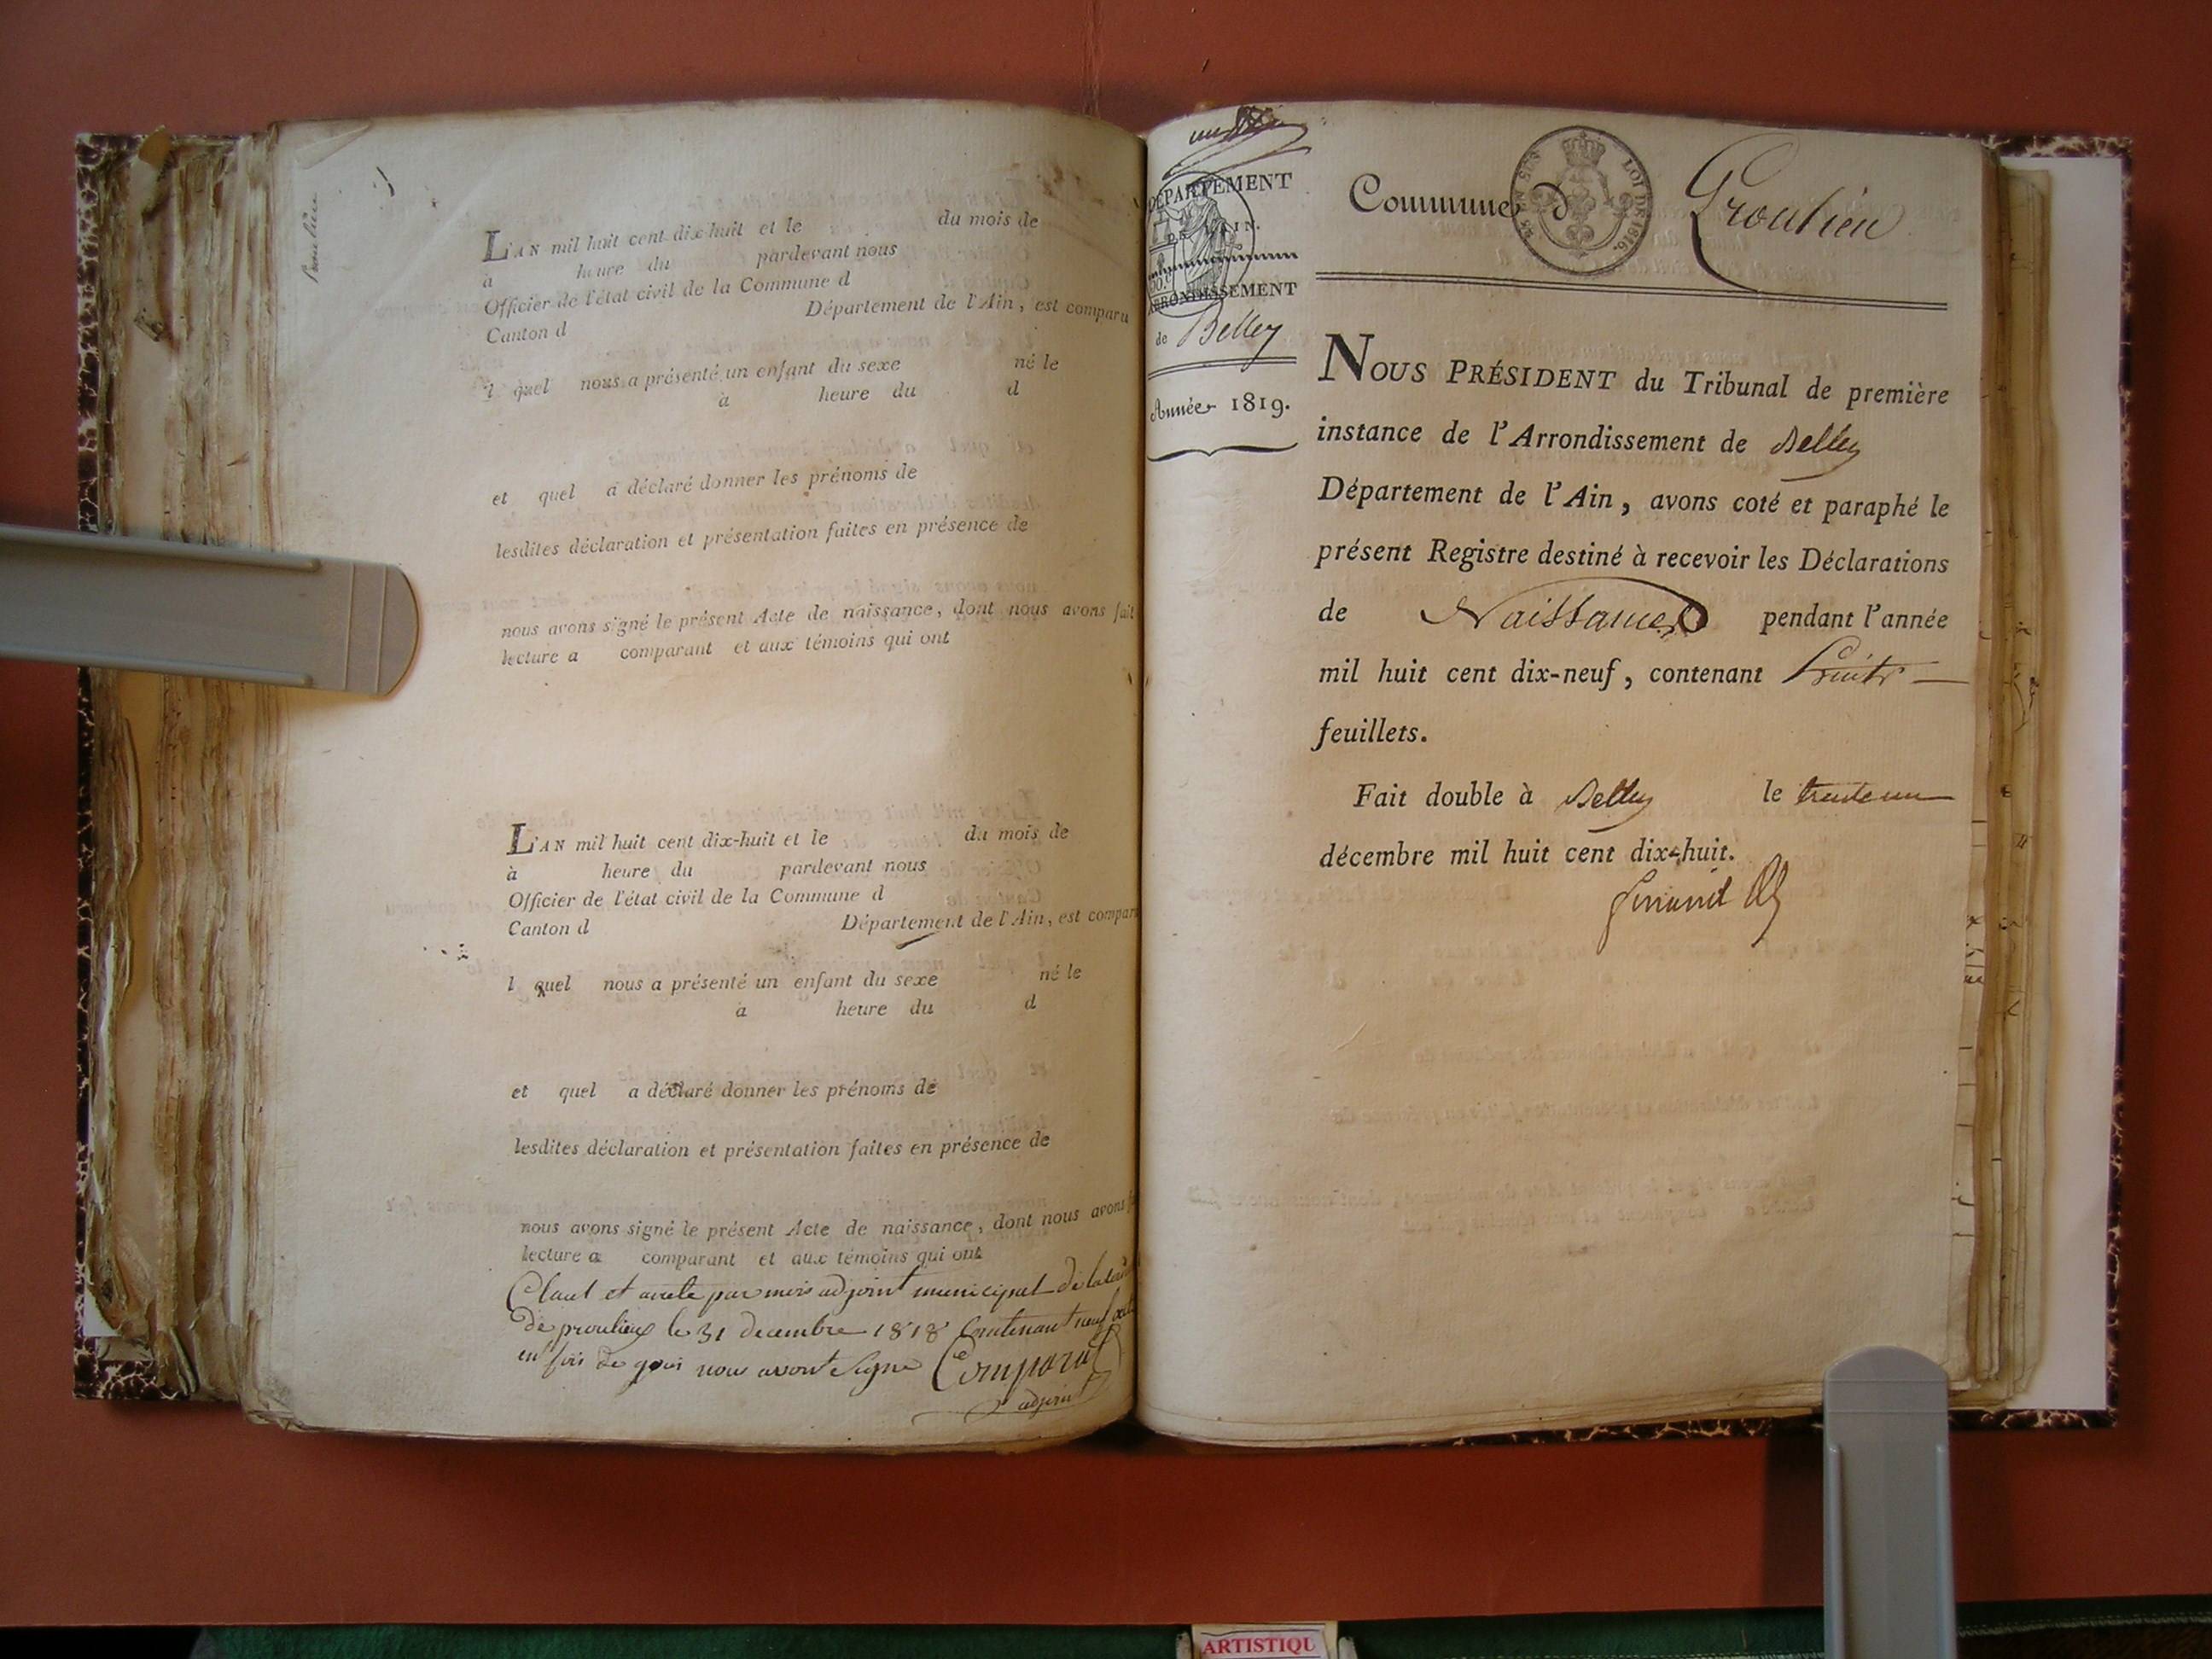 Proulieu
L'AN mil huit cent dix-huit et le du mois de
à heure du pardevant nous
Officier de l'état civil de la Commune d
Canton d Département de l'Ain, est comparu
l quel nous a présenté un enfant du sexe né le
à heure du d
et quel a déclaré donner les prénoms de
lesdites déclaration et présentation faites en présence de
nous avons signé le présent Acte de naissance, dont nous avons fait
lecture a comparant et aux témoins qui ont
L'AN mil huit cent dix-huit et le du mois de
à heure du pardevant nous
Officier de l'état civil de la Commune d
Canton d Département de l'Ain, est compar
l quel nous a présenté un enfant du sexe né le
à heure du d
et quel a déclaré donner les prénoms de
lesdites déclaration et présentation faites en présence de
nous avons signé le présent Acte de naissance, dont nous avons
lecture a comparant et aux témoins qui ont
Claut et arrete par mois adjoint municipal de
de proulieu le 31 decembre 1818 Contenant neuf
en fois de quoi nous avont Signé Comparat
adjoint
DÉPARTEMENT
DE L'AIN.
ARRONDISSEMENT
de Belley
Année 1819.
Commune d Proulieu
LOI DE 1816.
NOUS PRÉSIDENT du Tribunal de première
instance de l'Arrondissement de Belley
Département de l'Ain, avons coté et paraphé le
présent Registre destiné à recevoir les Déclarations
de Naissances pendant l'année
mil huit cent dix-neuf, contenant
feuillets.
Fait double à Belley le trente un
décembre mil huit cent dix-huit.
ARTISTIQU